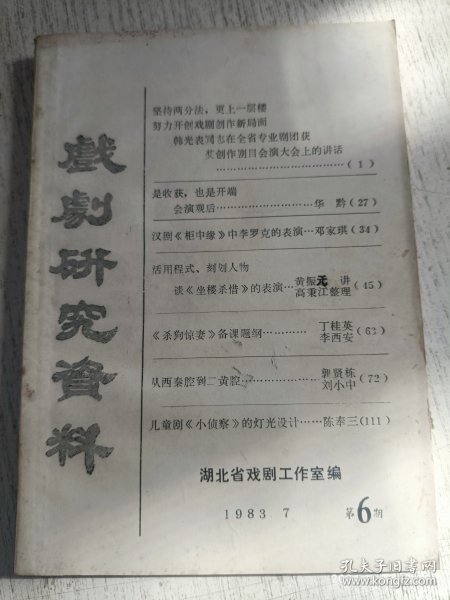 戲劇研究資料
坚持两分法，更上一层楼
努力开创戏剧创作新局面
韩光表同志在全省专业剧团获
奖创作剧目会演大会上的讲话
…………………………(1)
是收获，也是开端
会演观后……………………华 黔(27)
汉剧《柜中缘》中李罗克的表演…邓家琪(34)
活用程式、刻划人物
谈《坐楼杀惜》的表演…黄振元 讲 高秉江整理(45)
《杀狗惊妻》备课题纲………丁桂英 李西安(62)
从西秦腔到二黄腔……………郭贤栋 刘小中(72)
儿童剧《小侦察》的灯光设计……陈奉三(111)
湖北省戏剧工作室编
1983 7 第6期
孔夫子旧书网
www.kongfz.com